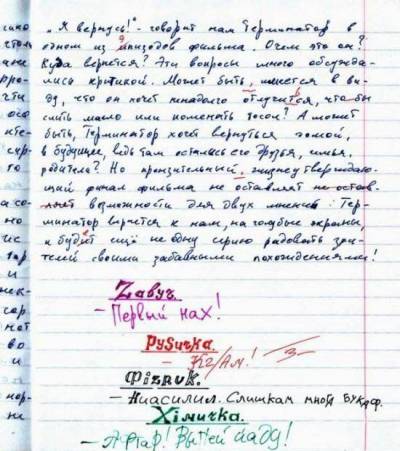 „Я вернусь!“ - говорит нам Терминатор в
одном из эпизодов фильма. О чем это он?
Куда вернется? Эти вопросы много обсужда-
лись критикой. Может быть, имеется в ви-
ду, что он хочет ненадолго отлучится, что-бы
слить масло или поменять тосол? А может
быть, Терминатор хочет вернуться домой,
в будущее, ведь там остались его друзья, семья,
родители? Но пронзительный, жизнеутверждаю-
щий финал фильма не оставляет не остав-
ляет возможности для двух мнений: Тер-
минатор вернется к нам, на голубые экраны,
и будет ещё не одну серию радовать зри-
телей своими забавными похождениями!
Zавуч.
- Первый нах!
РуSичка.
- КГ/Ам! 3-
Фizрuk.
- Ниасилил. Слишкам многа букаф.
Хiмичка.
- Афтар! Выпей йаду!